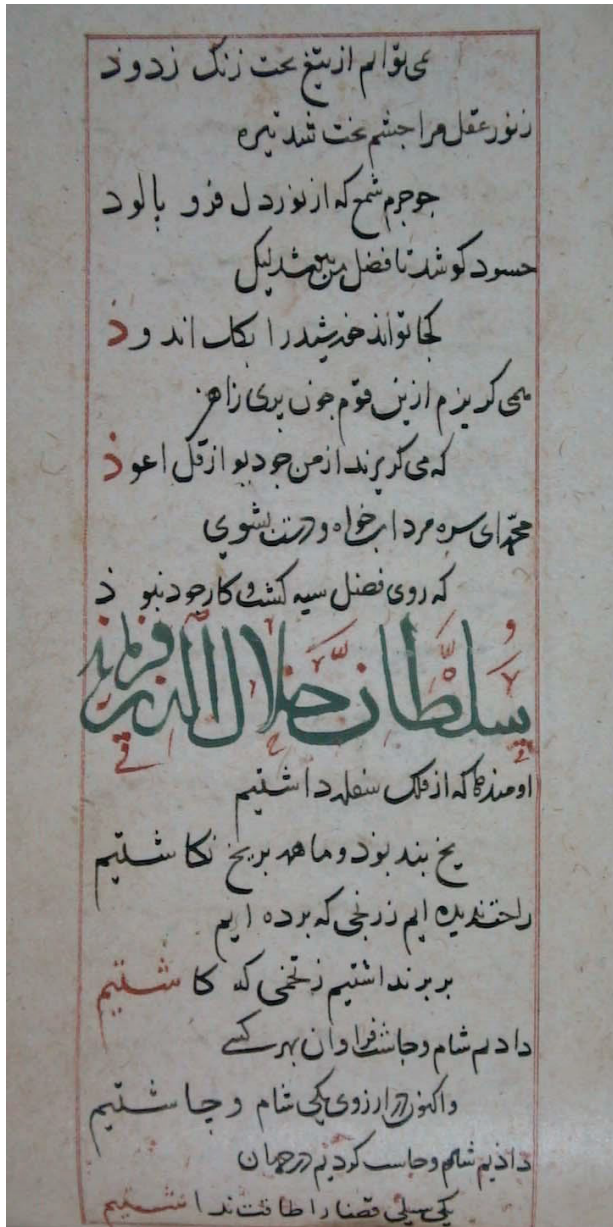 نمی توانم از تیغ بخت زنگ زدود
ز نور عقل مرا چشم بخت شد تیره
جو جرم شمع که از نور دل فرو بالود
حسود کوشد تا فضل من بپوشد لیک
کجا تواند خورشید را بکل اندود
همی کریزم ازین قوم جون بری زاهن
که می کریزند از من جو دیو از قل اعوذ
محمد ای سره مرد آب خواه و دست بشوی
که روی فضل سیه کشت و کار جود نبوذ
سلطان جلال الدین فرماید
اومیدها که از فلک سفله داشتیم
یخ بند بود و ما همه بر یخ نکاشتیم
راحت ندیده ایم ز رنجی که برده ایم
بر برنداشتیم ز تخمی که کاشتیم
دادیم شام و جاشت فراوان بهر کسی
واکنون در آرزوی یکی شام و جاشتیم
داذیم شام و جاست کردیم در جهان
یک سیلی قضا را طاقت نداشتیم